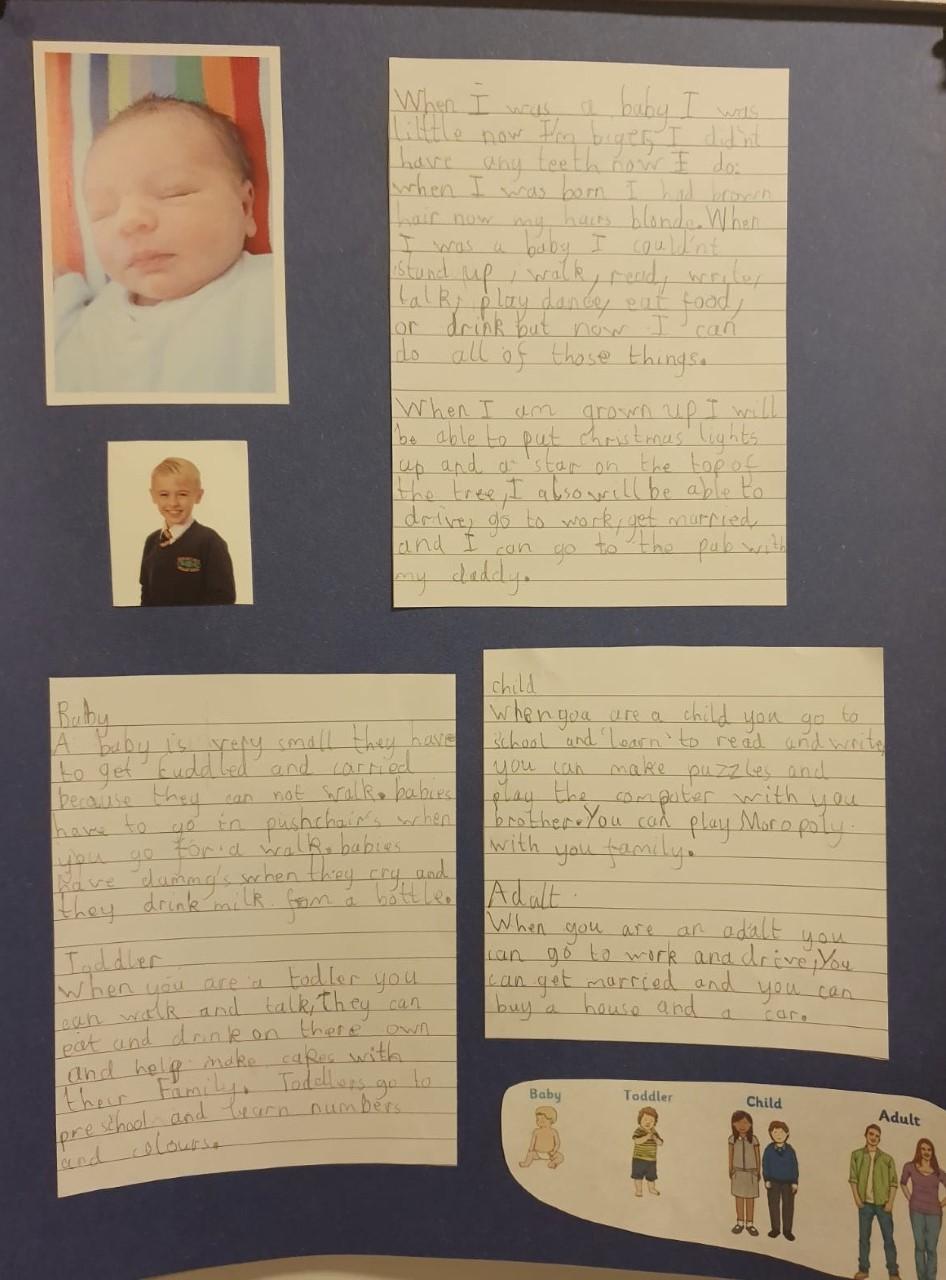 When I was a baby I was
little now I'm biger, I did'nt
have any teeth now I do.
when I was born I had brown
hair now my hairs blonde. When
I was a baby I could'nt
stand up, walk, read, write,
talk, play dance, eat food,
or drink but now I can
do all of those things.
When I am grown up I will
be able to put christmas lights
up and a star on the top of
the tree, I also will be able to
drive, go to work, get married,
and I can go to the pub with
my daddy.
Baby
A baby is very small they have
to get cuddled and carried
because they can not walk. babies
have to go in pushchair's when
you go for a walk. babies
have dummy's when they cry and
they drink milk from a bottle.
Toddler
When you are a todler you
can walk and talk, They can
eat and drink on there own
and help make cakes with
their Family. Toddlers go to
pre school and learn numbers
and colours.
child
When you are a child you go to
school and learn to read and write,
you can make puzzles and
play the computer with you
brother. You can play Monopoly
with you family.
Adult
When you are an adult you
can go to work and drive, You
can get married and you can
buy a house and a car.
Baby
Toddler
Child
Adult